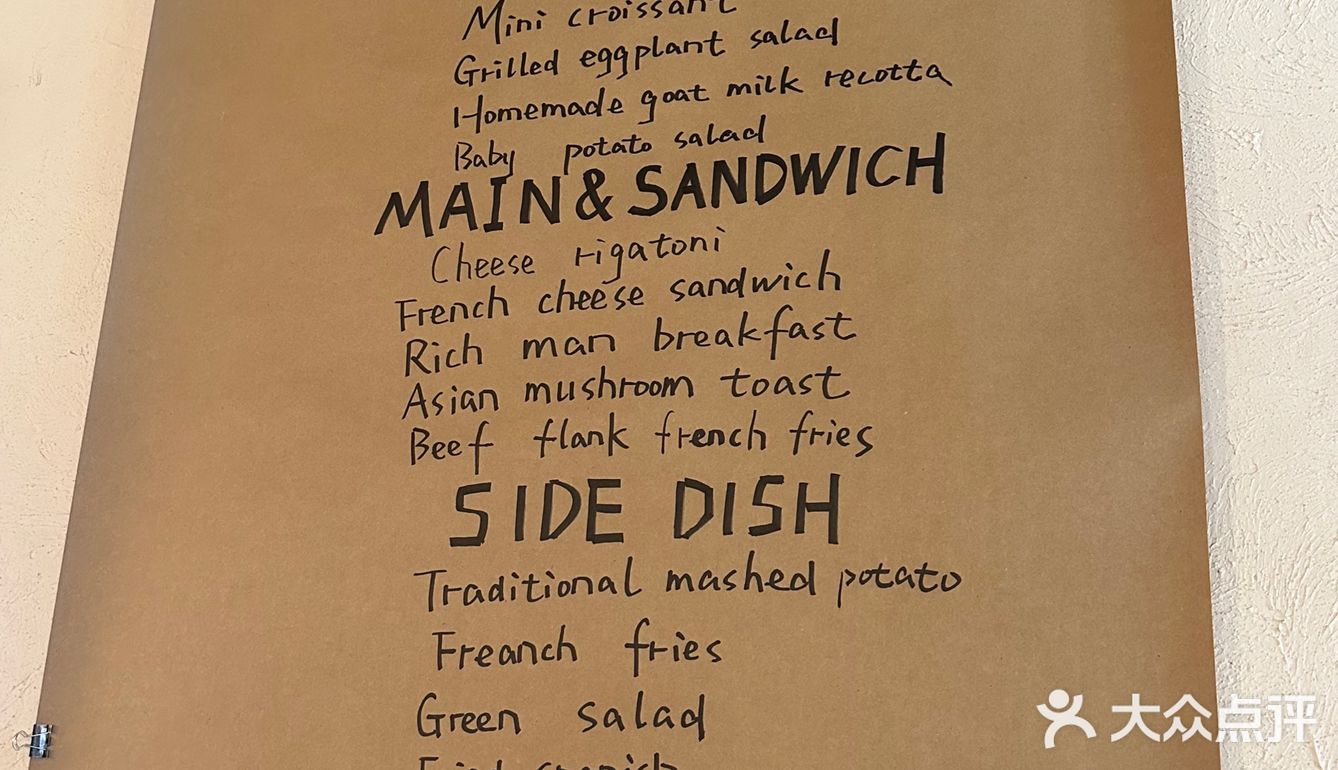 Mini croissant
Grilled eggplant salad
Homemade goat milk recotta
Baby potato salad
MAIN & SANDWICH
Cheese rigatoni
French cheese sandwich
Rich man breakfast
Asian mushroom toast
Beef flank french fries
SIDE DISH
Traditional mashed potato
Freanch fries
Green salad
大众点评